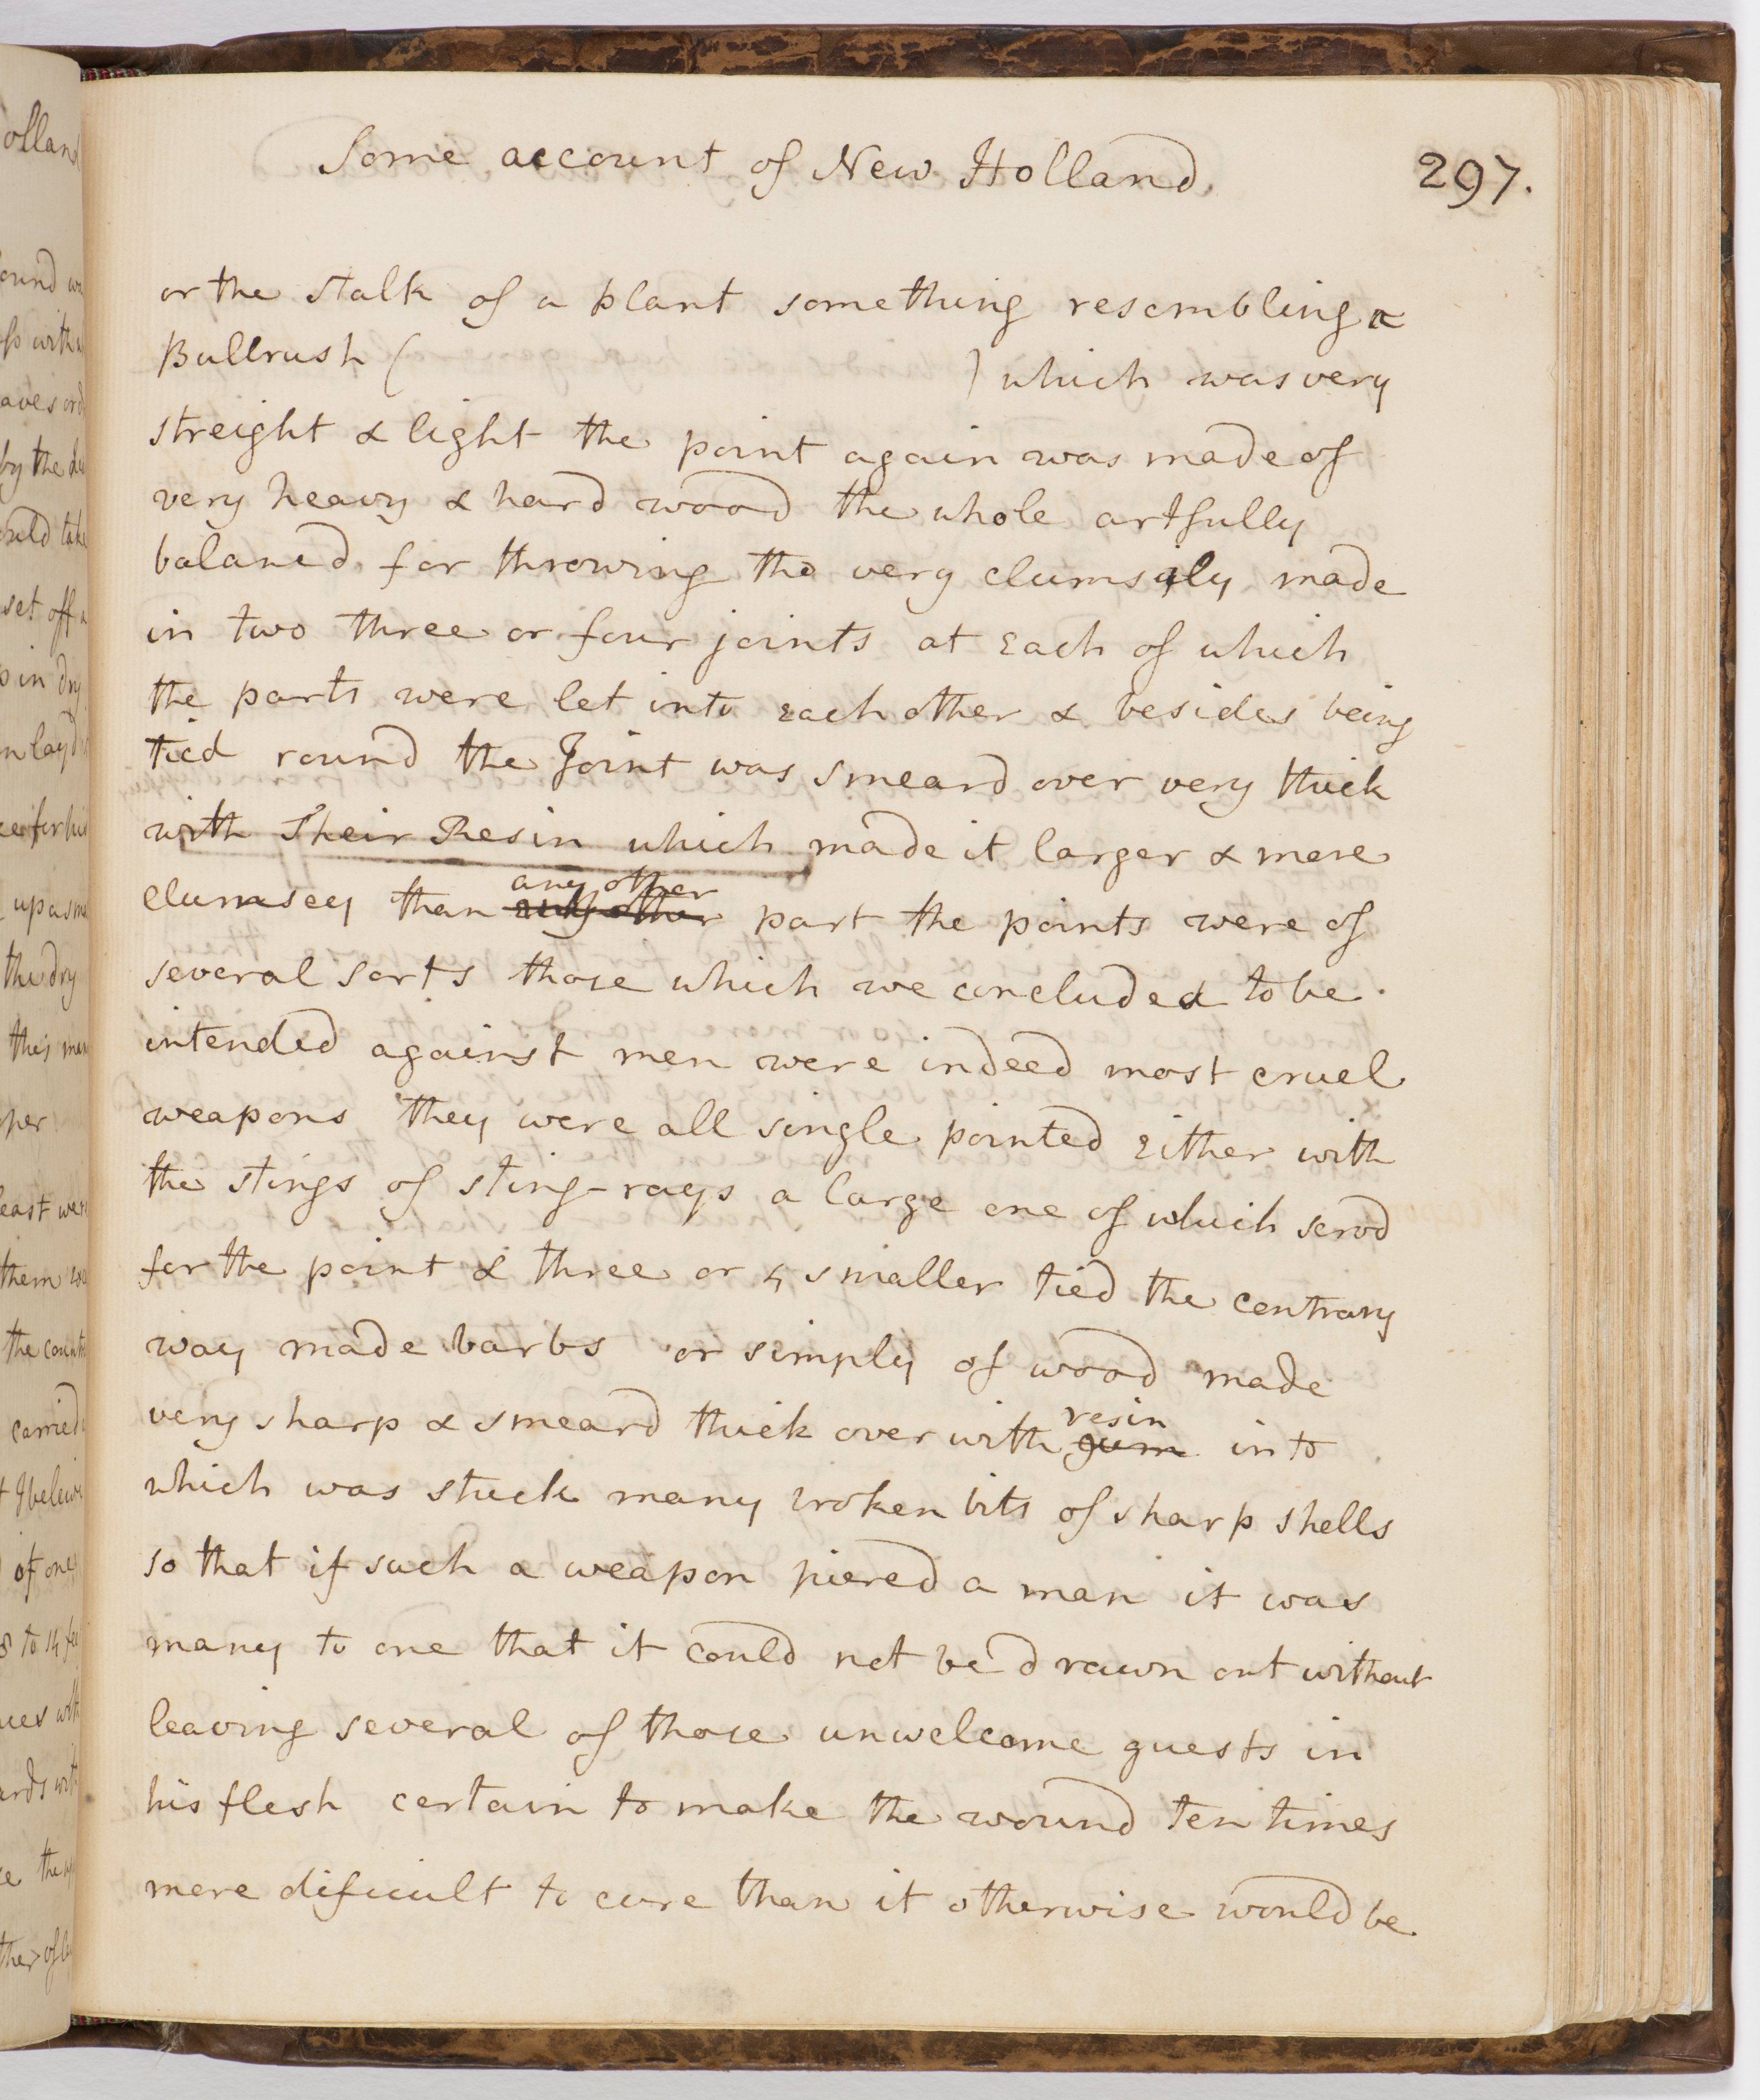 Some account of New Holland
297.
or the stalk of a plant something resembling a
Bullrush ( ) which was very
streight & light the point again was made of
very heavy & hard wood the whole artfully
balancd for throwing tho very clumsily made
in two three or four joints at Each of which
the parts were let into Each other & besides being
tied round the Joint was smeard over very thick
with Their Resin which made it larger & more
clumsey than any other part the points were of
several sorts those which we concluded to be
intended against men were indeed most cruel
weapons they were all single pointed Either with
the stings of sting-rays a large one of which servd
for the point & three or 4 smaller tied the contrary
way made barbs or simply of wood made
very sharp & smeard thick over with gum resin into
which was stuck many broken bits of sharp shells
so that if such a weapon piercd a man it was
many to one that it could not be drawn out without
leaving several of those unwelcome guests in
his flesh certain to make the wound ten times
more dificult to cure than it otherwise would be